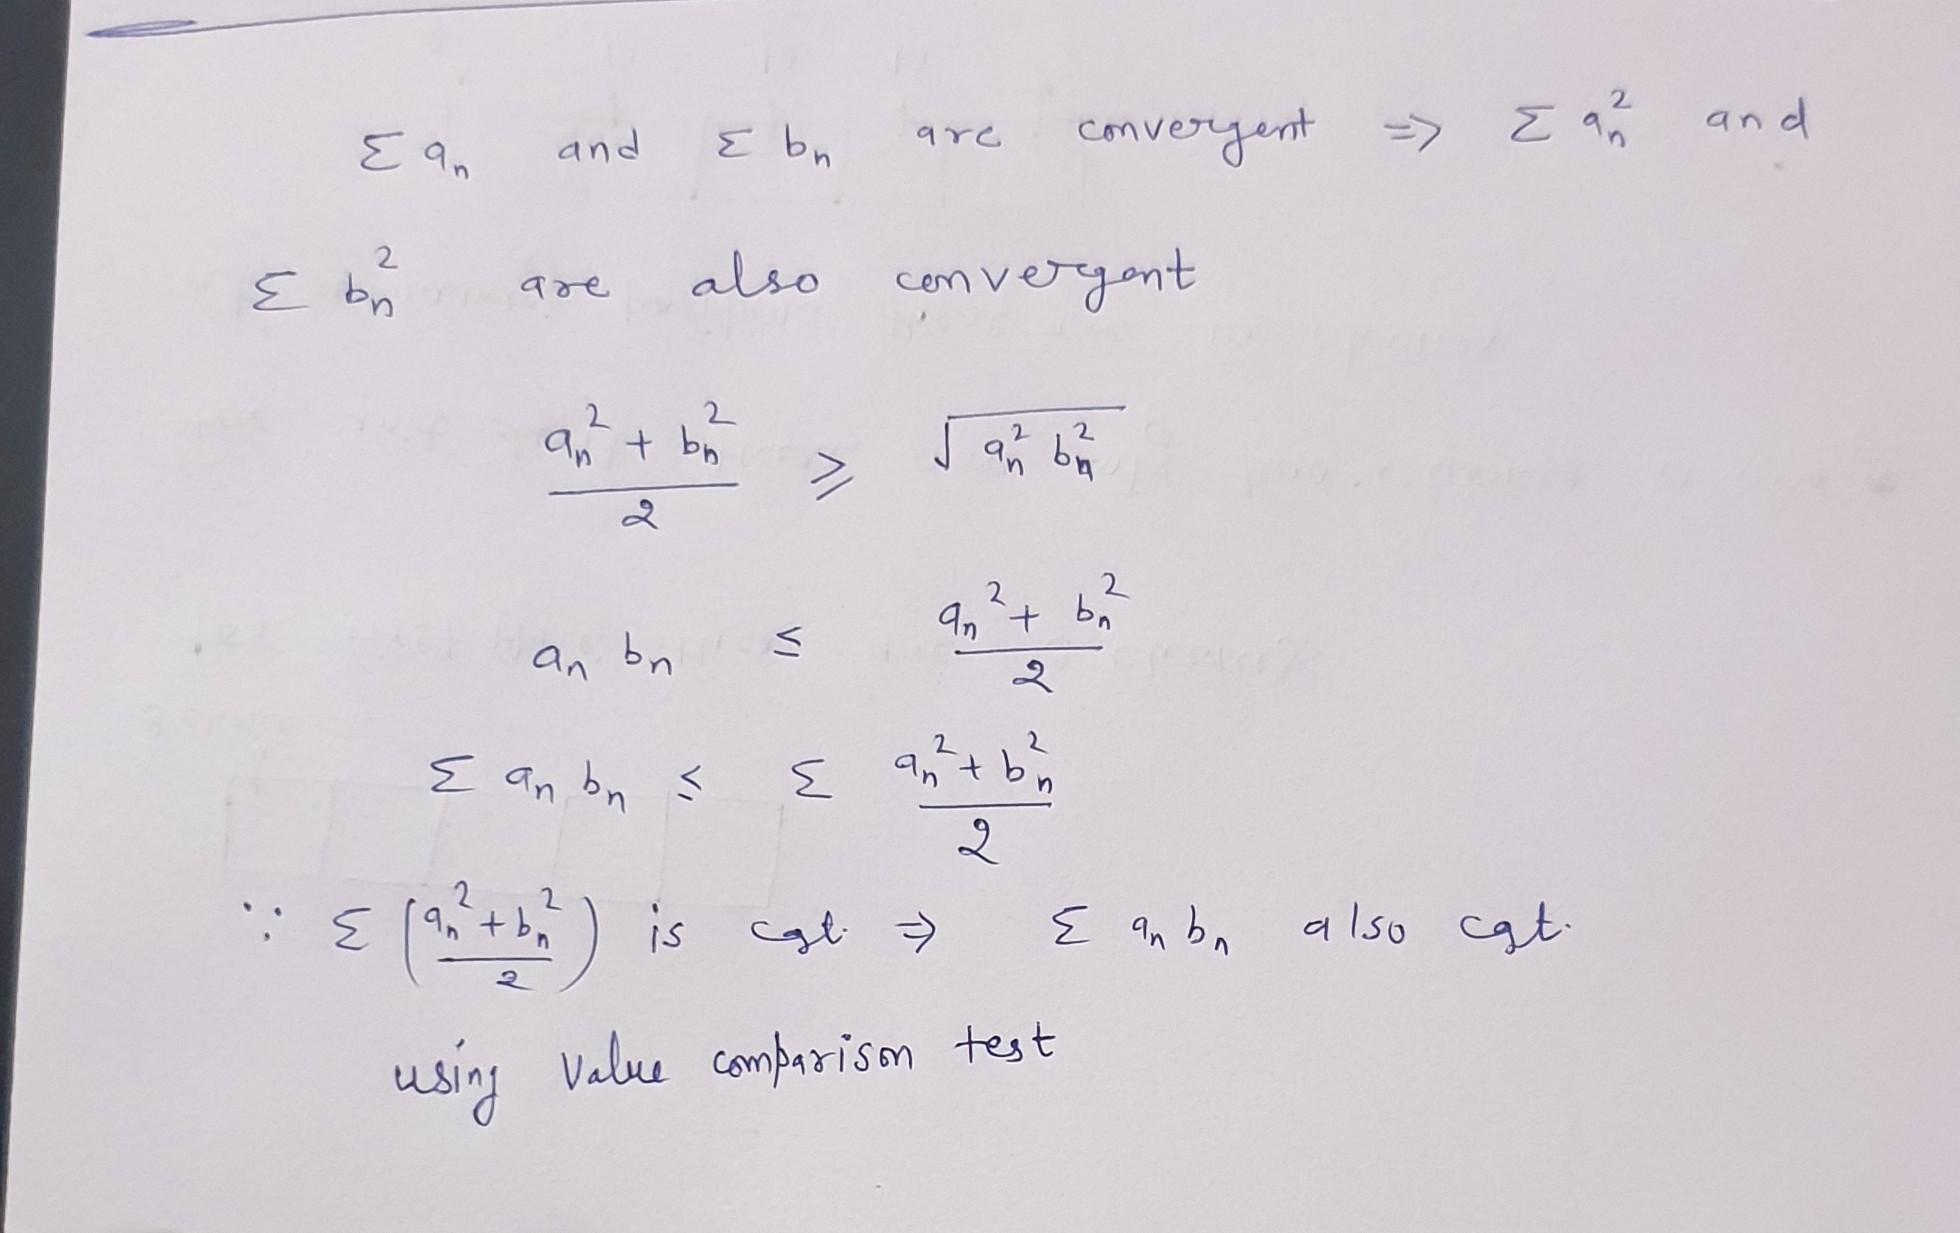 Σ aₙ and Σ bₙ are convergent => Σ aₙ² and
Σ bₙ² are also convergent
(aₙ² + bₙ²)/2 ⩾ √(aₙ² bₙ²)
aₙ bₙ ≤ (aₙ² + bₙ²)/2
Σ aₙ bₙ ≤ Σ (aₙ² + bₙ²)/2
∵ Σ ((aₙ² + bₙ²)/2) is cgt. ⇒ Σ aₙ bₙ also cgt.
using Value comparison test